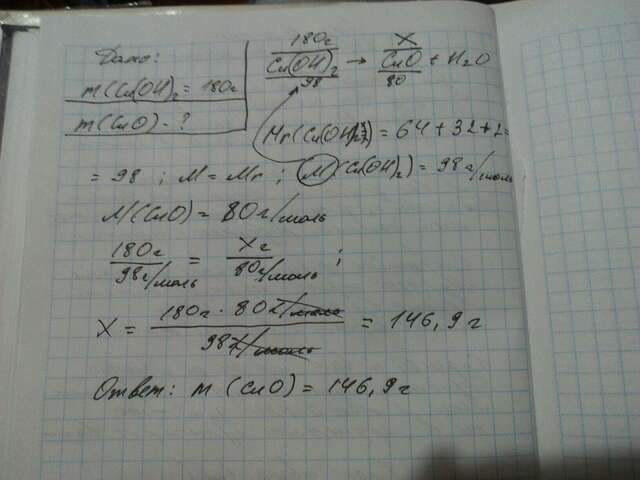 Дано:
m(Cu(OH)₂ = 180г
m(CuO) - ?
180г X
Cu(OH)₂ → CuO + H₂O
98 80
Mr(Cu(OH)₂) = 64 + 32 + 2 =
= 98 ; M = Mr ; M(Cu(OH)₂) = 98 г/моль
M(CuO) = 80 г/моль
180г/98г/моль = Xг/80г/моль ;
X = 180г · 80г/моль / 98г/моль = 146,9 г
Ответ: m (CuO) = 146,9г